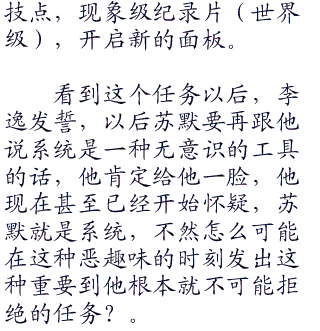 技点，现象级纪录片（世界
级），开启新的面板。
看到这个任务以后，李
逸发誓，以后苏默要再跟他
说系统是一种无意识的工具
的话，他肯定给他一脸，他
现在甚至已经开始怀疑，苏
默就是系统，不然怎么可能
在这种恶趣味的时刻发出这
种重要到他根本就不可能拒
绝的任务？。